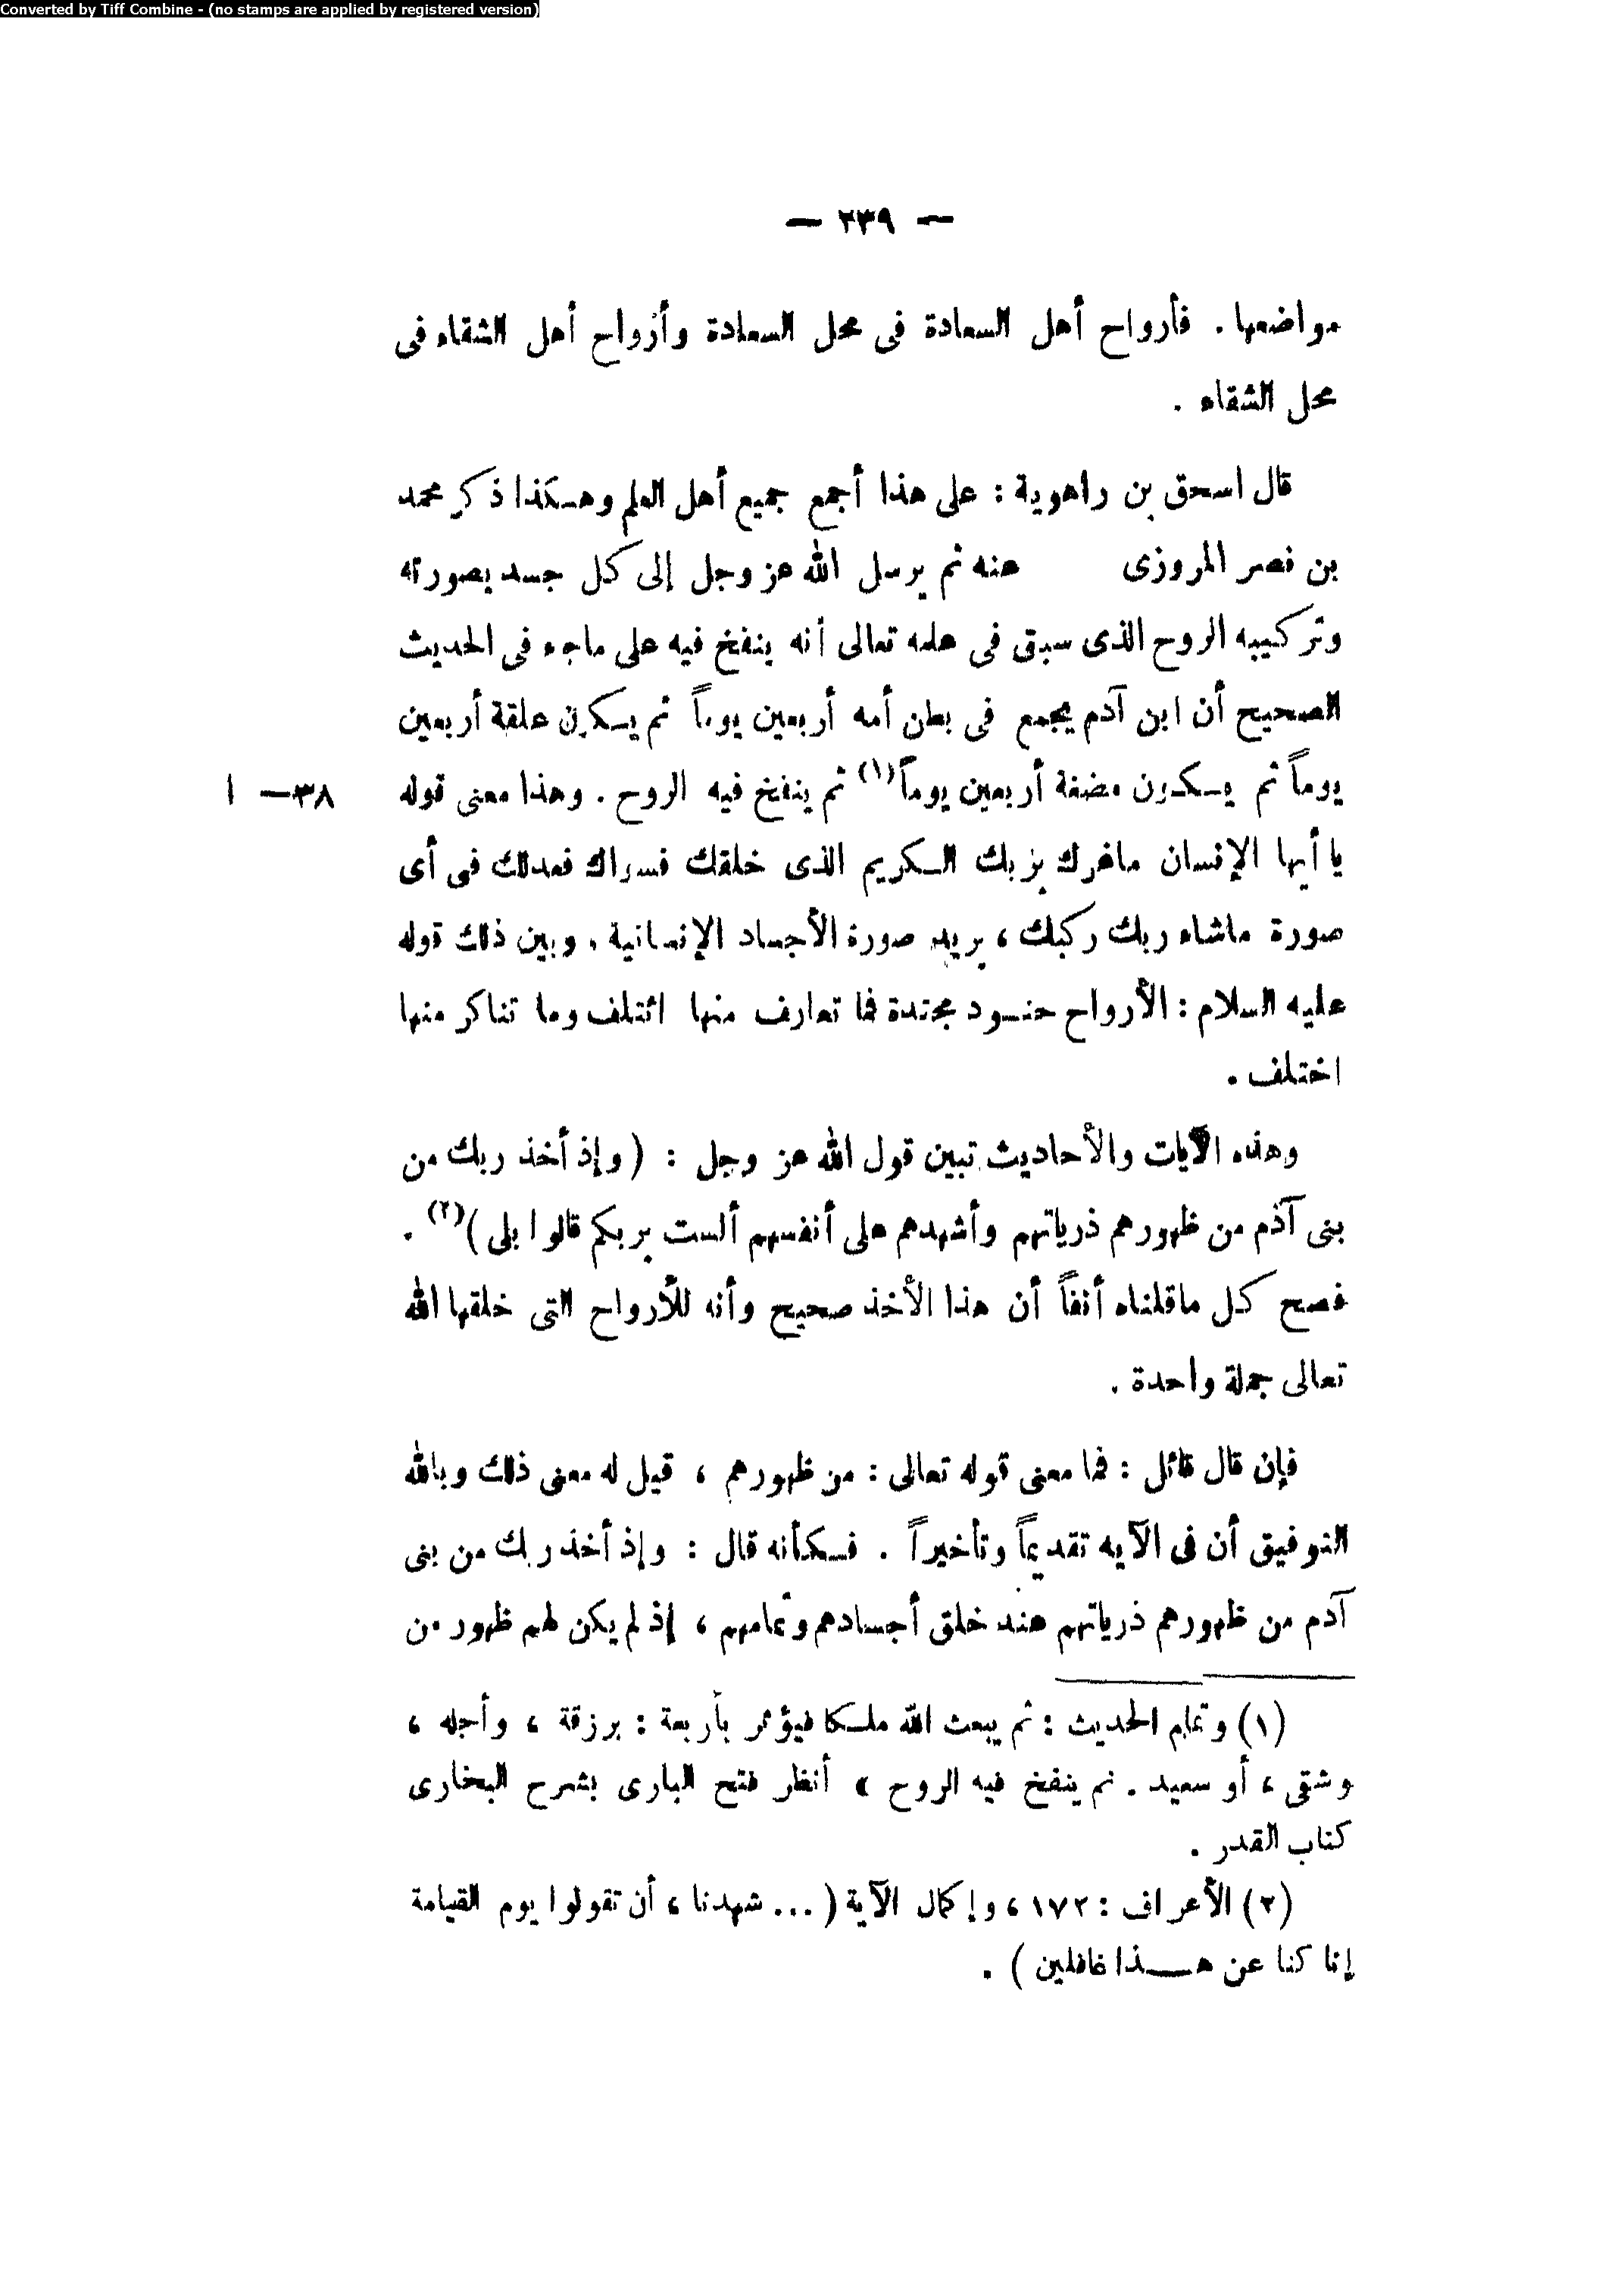 Converted by Tiff Combine - (no stamps are applied by registered version)
— ٢٣٩ —
مواضعها . فأرواح أهل السعادة فى محل السعادة وأرواح أهل الشقاء فى
محل الشقاء .
قال اسحق بن راهوية : على هذا أجمع جميع أهل العلم وهكذا ذكر محمد
بن نصر المروزى عنه ثم يرسل الله عز وجل إلى كل جسد بصورته
وتركيبه الروح الذى سبق فى علمه تعالى أنه ينفخ فيه على ماجاء فى الحديث
الصحيح أن ابن آدم يجمع فى بطن أمه أربعين يوماً ثم يكون علقة أربعين
يوماً ثم يكون مضغة أربعين يوماً (١) ثم ينفخ فيه الروح . وهذا معنى قوله
٣٨ — ا
يا أيها الإنسان ماغرك بربك الكريم الذى خلقك فسواك فعدلك فى أى
صورة ماشاء ربك ركبك ، يريد صورة الأجساد الإنسانية . وبين ذلك قوله
عليه السلام : الأرواح جنود مجندة فما تعارف منها ائتلف وما تناكر منها
اختلف .
وهذه الآيات والأحاديث تبين قول الله عز وجل : ( وإذ أخذ ربك من
بنى آدم من ظهورهم ذرياتهم وأشهدهم على أنفسهم ألست بربكم قالوا بلى ) (٢) .
فصح كل ماقلناه أنفاً أن هذا الأخذ صحيح وأنه للأرواح التى خلقها الله
تعالى جملة واحدة .
فإن قال قائل : فما معنى قوله تعالى : من ظهورهم ، قيل له معنى ذلك وبالله
التوفيق أن فى الآيه تقديماً وتأخيراً . فكأنه قال : وإذ أخذ ربك من بنى
آدم من ظهورهم ذرياتهم عند خلق أجسادهم وتمامهم ، إذ لم يكن لهم ظهور من
(١) وتمام الحديث : ثم يبعث الله ملكا فيؤمر بأربعة : برزقة ، وأجله ،
وشقى ، أو سعيد . ثم ينفخ فيه الروح » أنظر فتح البارى بشرح البخارى
كتاب القدر .
(٢) الأعراف : ١٧٢ ، وإكمال الآية ( ... شهدنا ، أن تقولوا يوم القيامة
إنا كنا عن هذا غافلين ) .